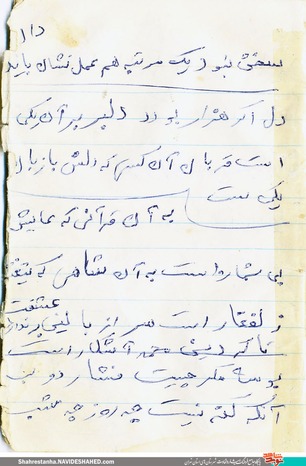 دال
سخن نبود یک مرتبه هم عمل نشان باید
دل اگر هزار بود دلبر بر آن یکی
است قربان آن کسی که دلش با زبان
یکی ست
به آن قرآنی که
بی شمار است به آن شاهی که تیغش
ذلفقار است سر از بالین
عشقت
تا که دین محمد آشکار است
بوسه مگر چیست فشار دو لب
آنکه گنه نیست چه روز چه شب
Shahrestanha.NAVIDESHAHED.com